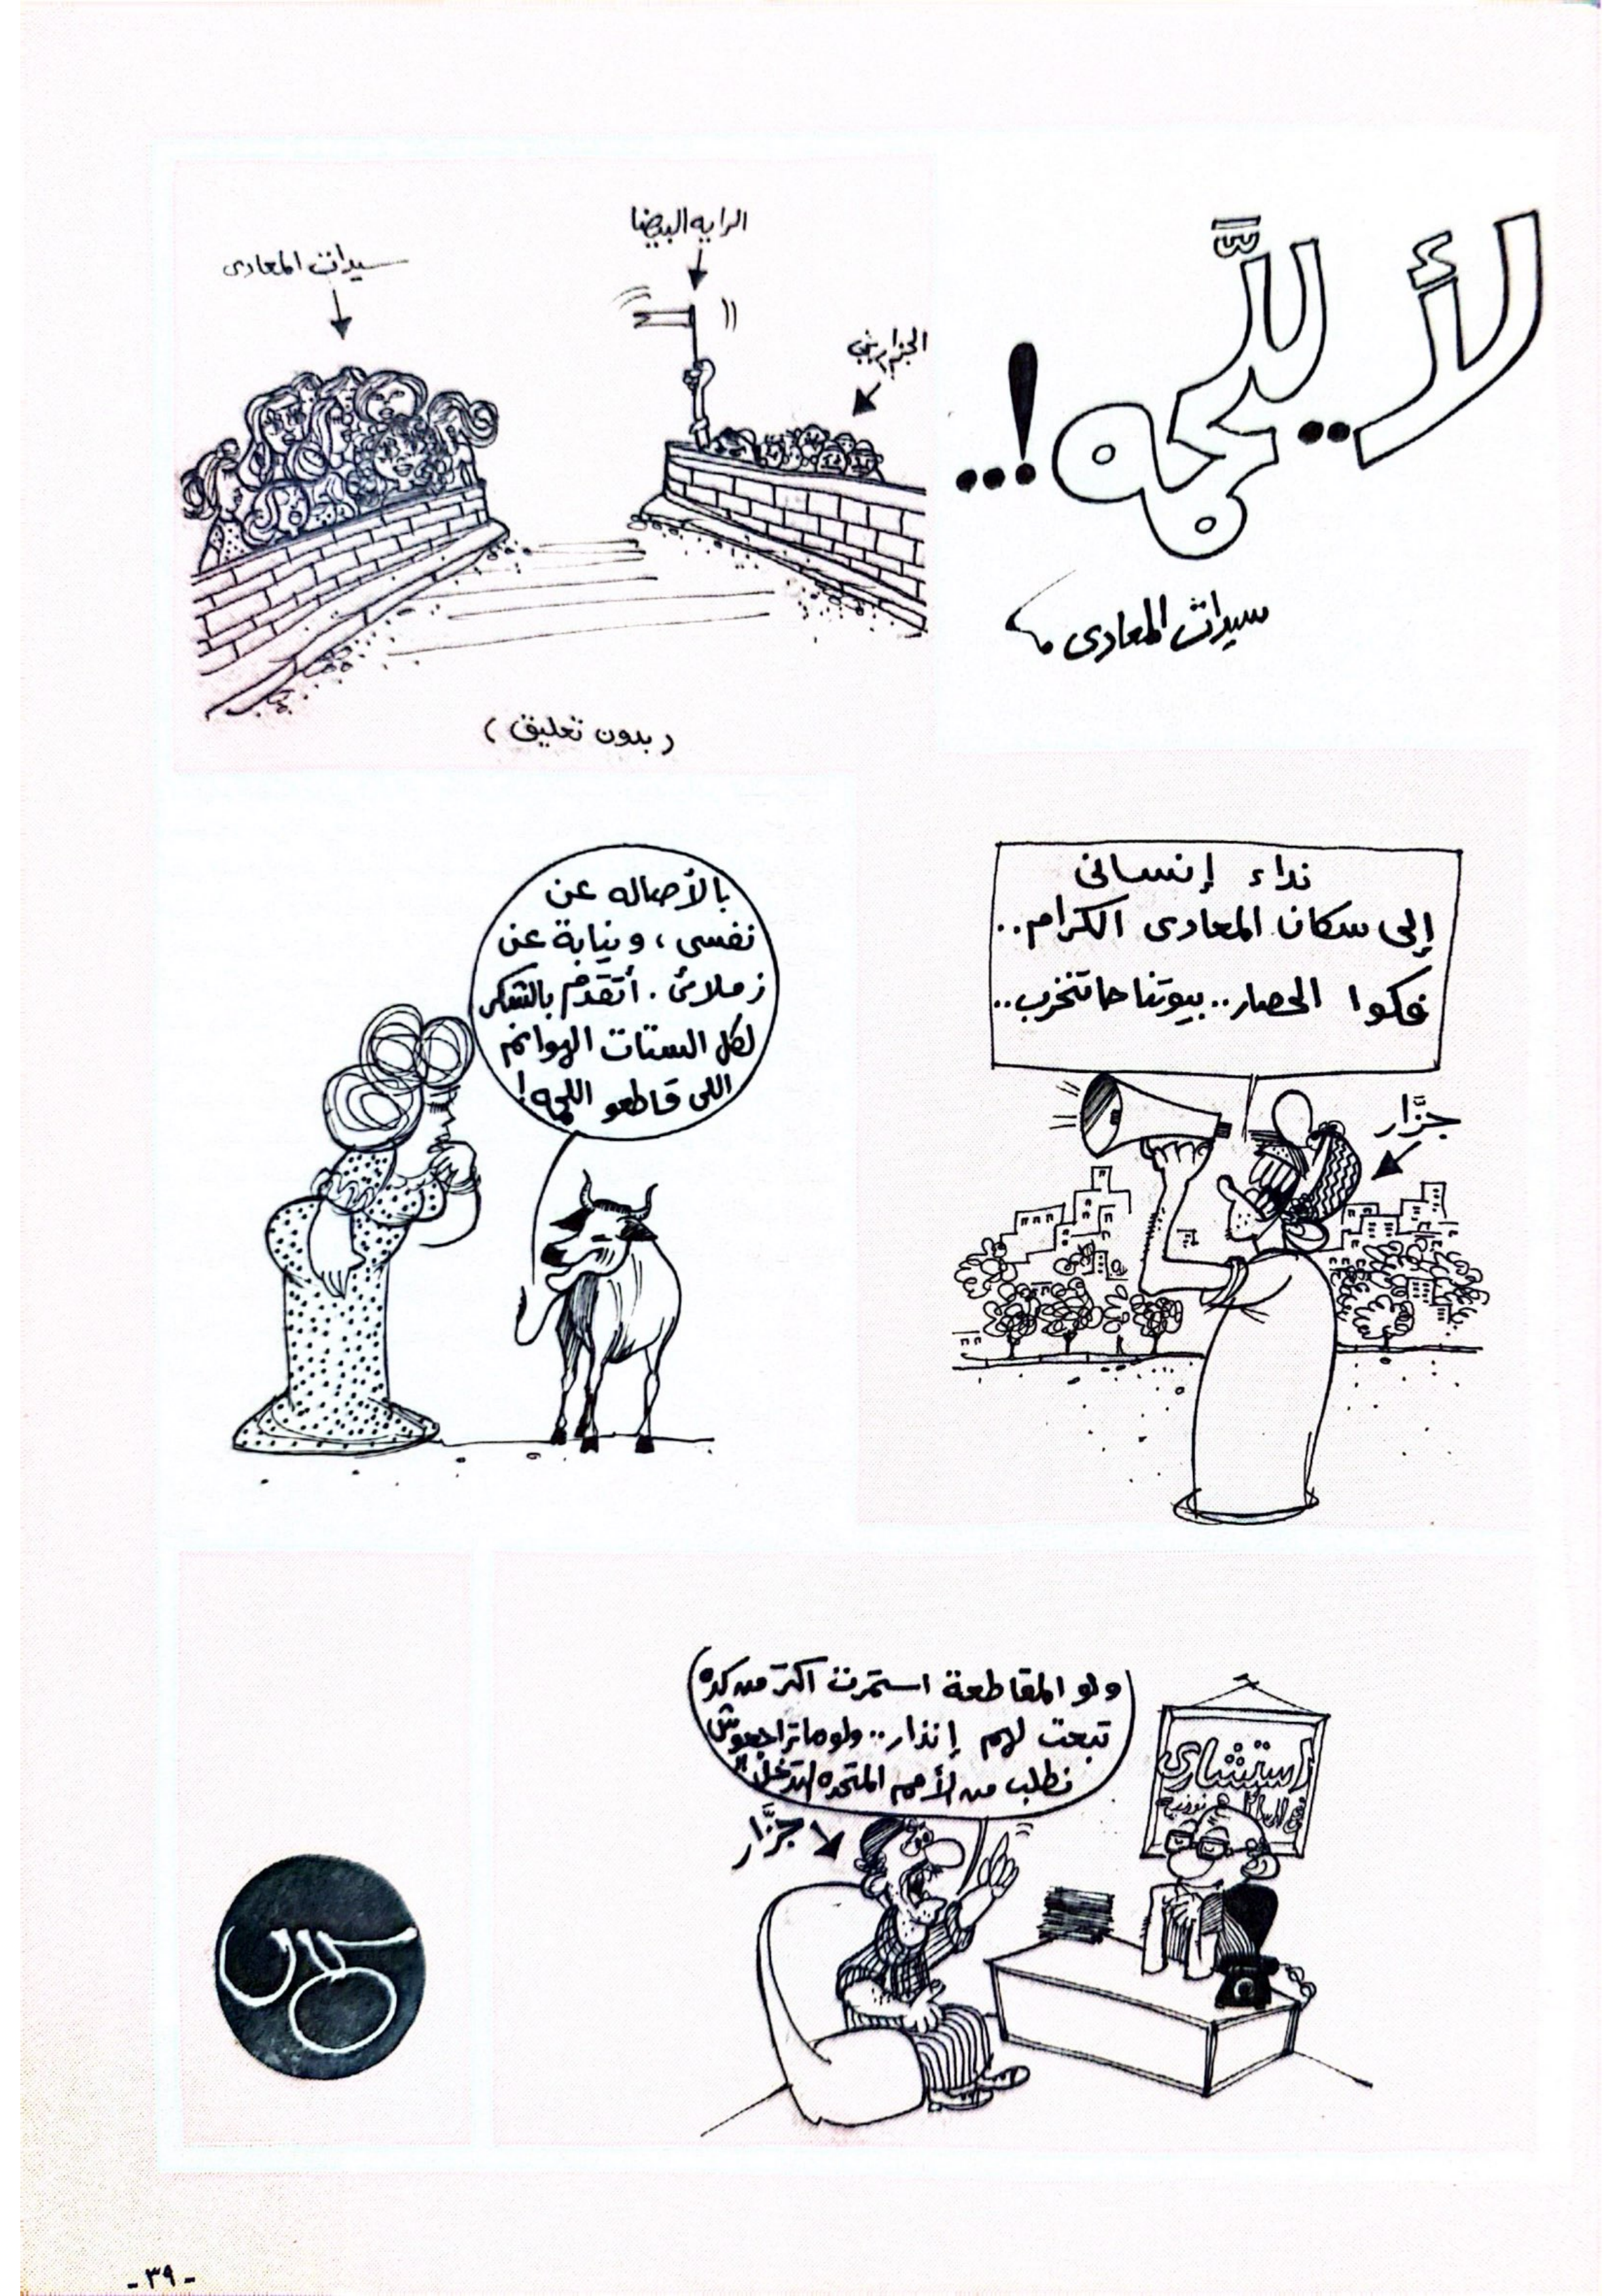 لأ.. للَّحمه!...
سيدات المعادى
الرايه البيضا
سيدات المعادى
الجزارين
(بدون تعليق)
نداء إنسانى
إلى سكان المعادى الكرام..
فكوا الحصار.. بيوتنا حاتتخرب..
جزَّار
بالأصاله عن
نفسى، ونيابة عن
زملائى. أتقدم بالشكر
لكل الستات الهوانم
اللى قاطعو اللحمه!
ولو المقاطعة استمرت اكتر من كده
نبعت لهم إنذار.. ولو ماتراجعوش
نطلب من الأمم المتحده التدخل
جزَّار
استشارى
- ٣٩ -